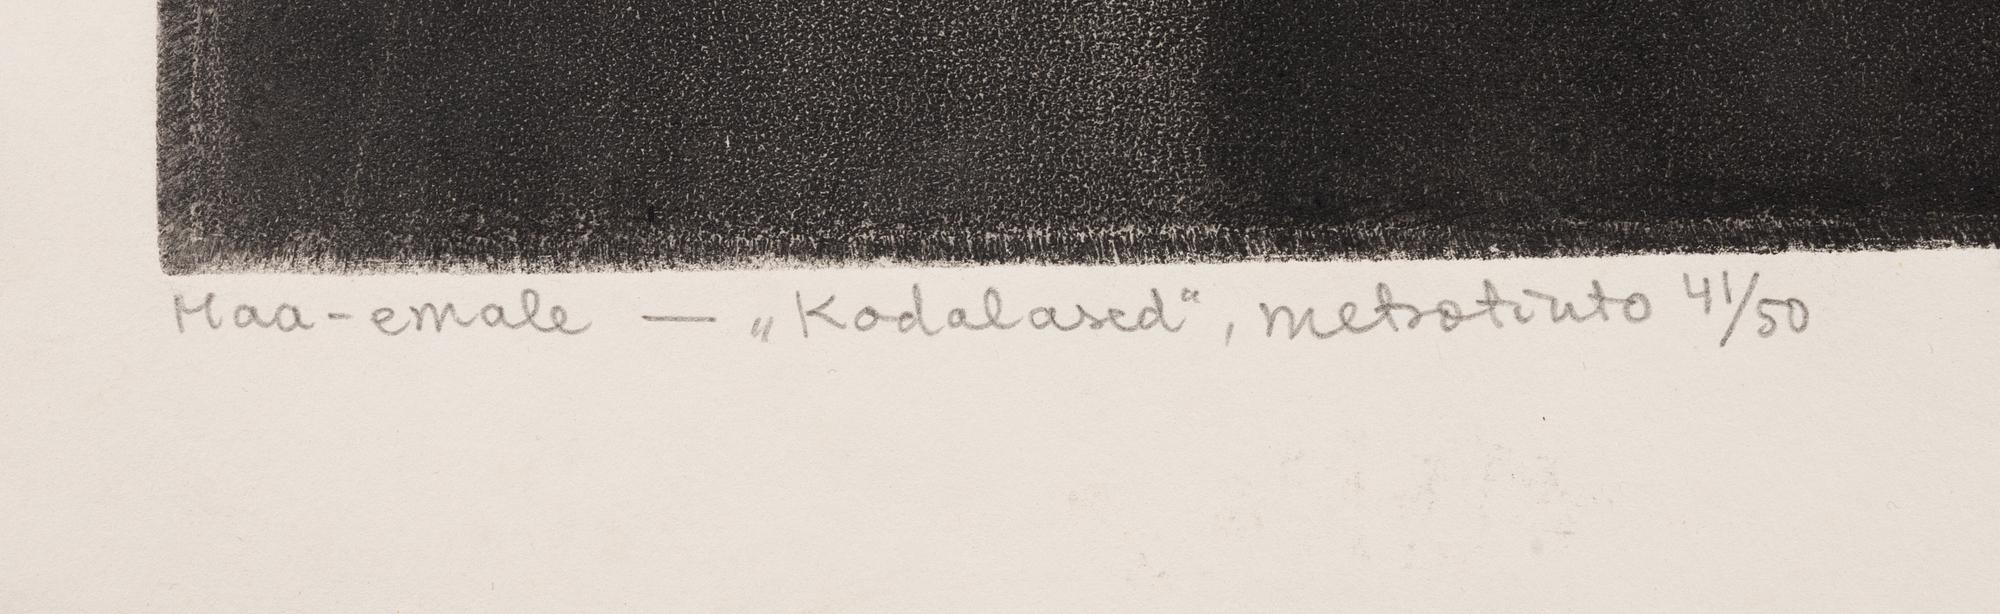 Maa-emale — „Kodalased“, metsotinto 41/50